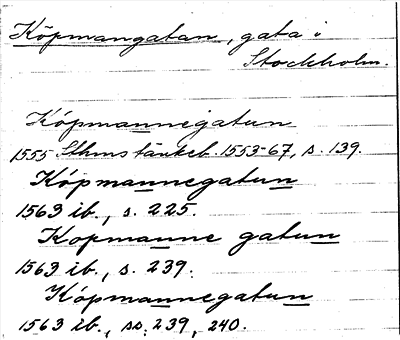 Köpmangatan, gata i
Stockholm.
Köpmannegatun
1555 Sthms tänkeb. 1553-67, s. 139.
Köpmannegatun
1563 ib., s. 225.
Kopmanne gatun
1563 ib., s. 239.
Köpmannegatun
1563 ib., ss. 239, 240.